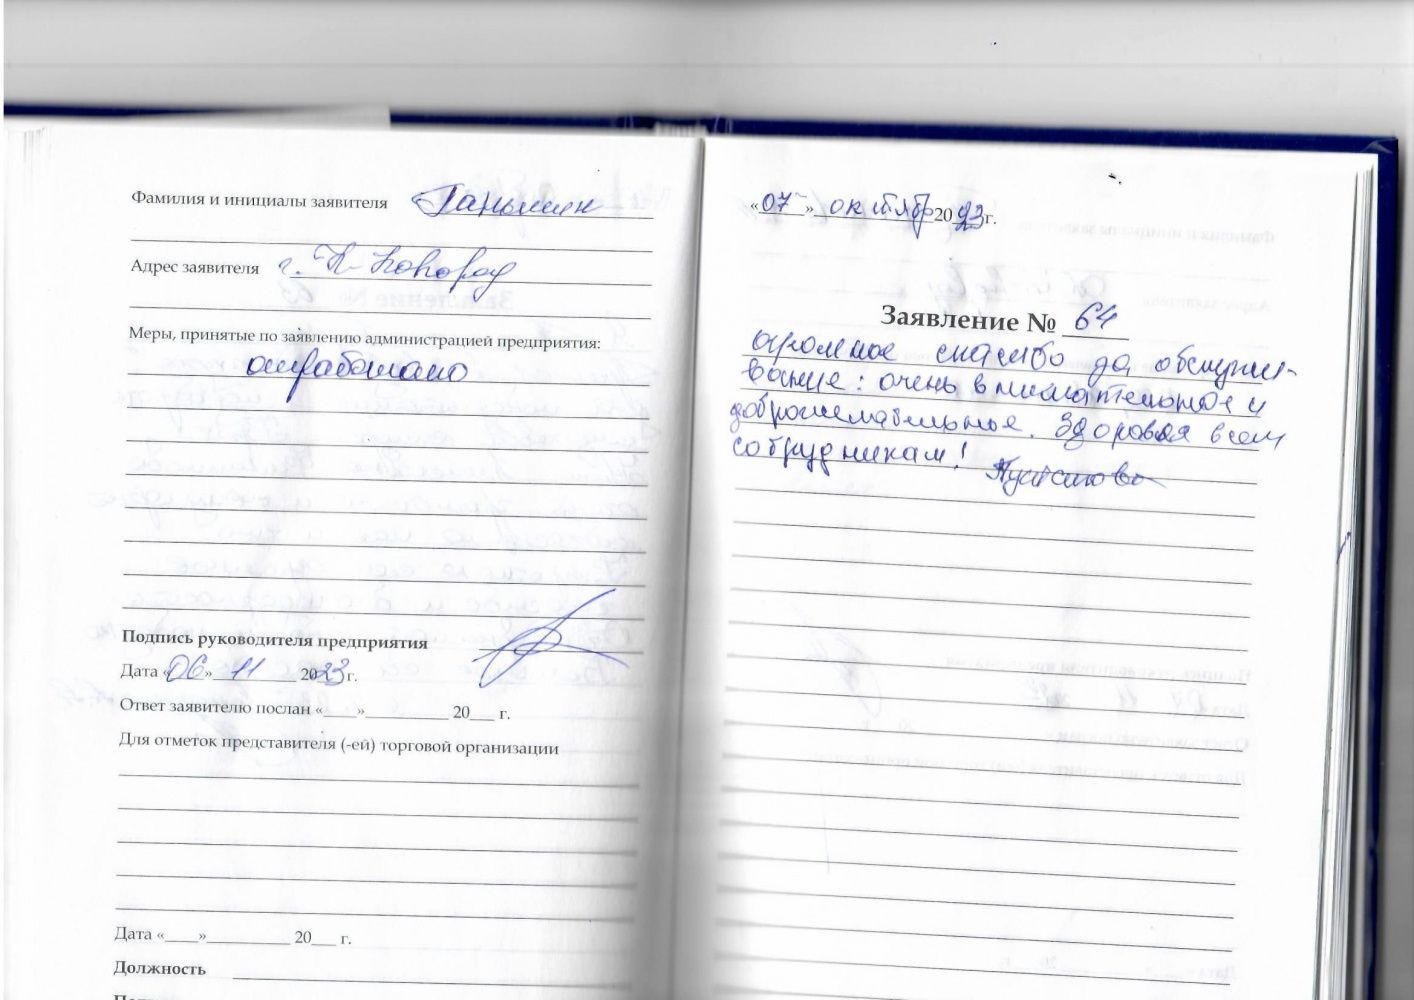 Фамилия и инициалы заявителя Ганьшин
Адрес заявителя г. Н-Новгород
Меры, принятые по заявлению администрацией предприятия:
отработано
Подпись руководителя предприятия
Дата «06» 11 2023 г.
Ответ заявителю послан «____»__________ 20___ г.
Для отметок представителя (-ей) торговой организации
Дата «____»__________ 20___ г.
Должность
«07» октябр 2023 г.
Заявление № 64
огромное спасибо за обслужи-
вание: очень внимательное и
доброжелательное. Здоровья всем
сотрудникам!